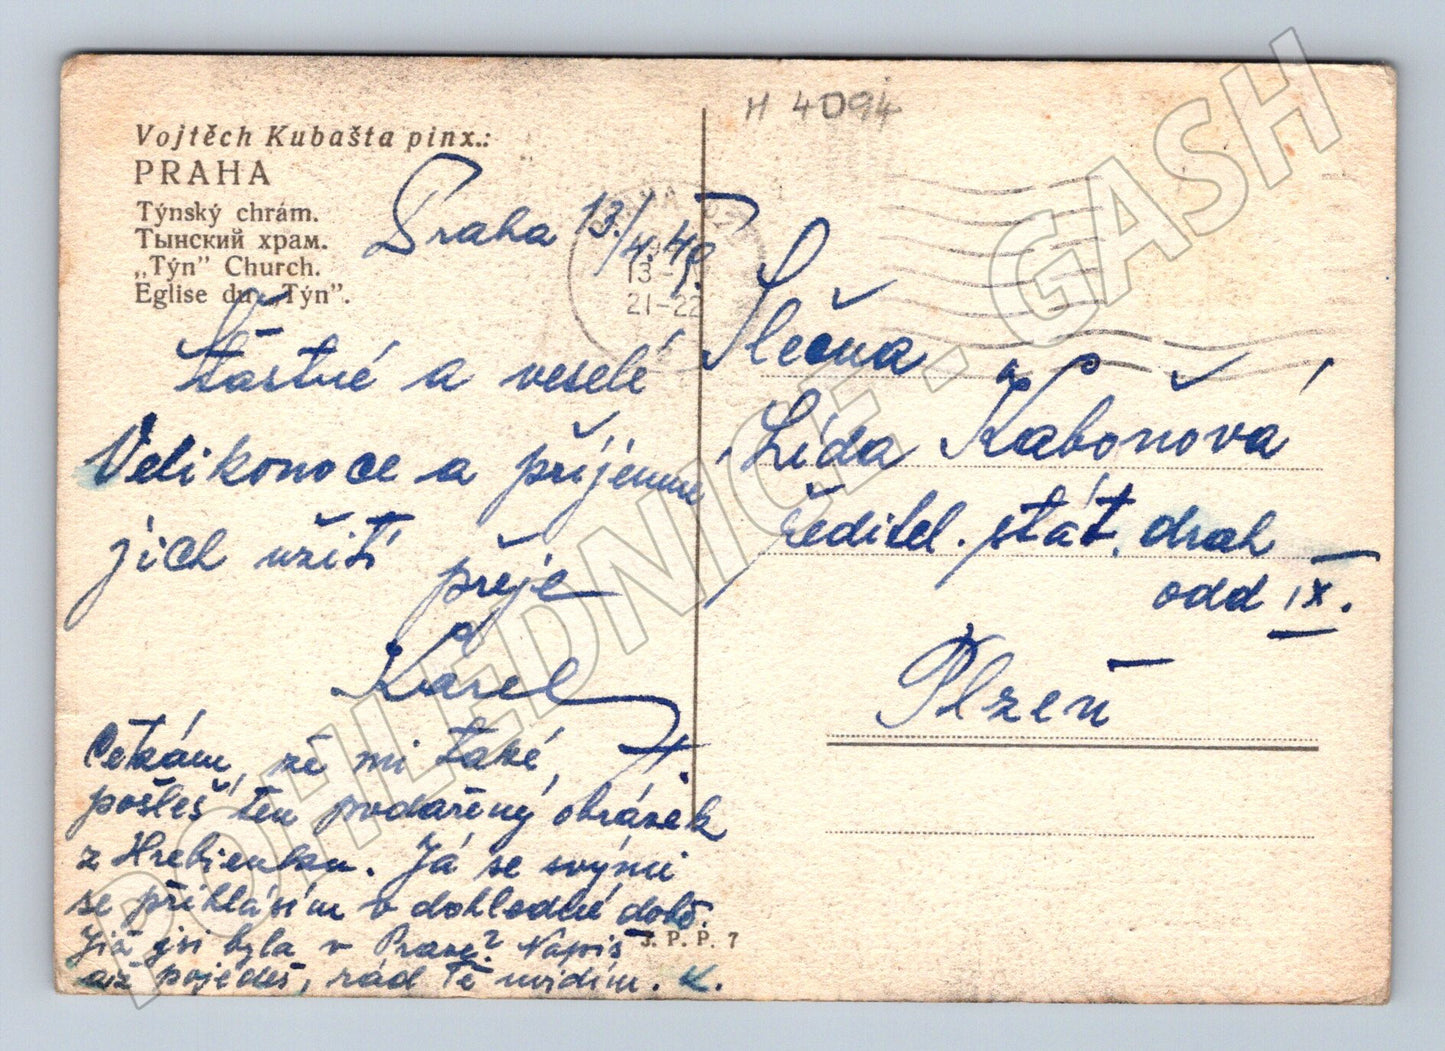 H 4094
Vojtěch Kubašta pinx.:
PRAHA
Týnský chrám.
Тынский храм.
„Týn” Church.
Eglise du „Týn”.
Praha 13./4.49.
13
21-22
Šťastné a veselé
Velikonoce a příjemné
jich užití
přeje
Karel
Čekám, že mi také,
pošleš ten podařený obrázek
z Hrebienku. Já se svými
se přihlásím v dohledné době.
Již jsi byla v Praze? Napiš
až pojedeš, rád Tě uvidím. K.
Slečna
Lída Kaboňová
ředitel. stát. drah
odd IX.
Plzeň
J. P. P. 7
POHLEDNICE - GASH